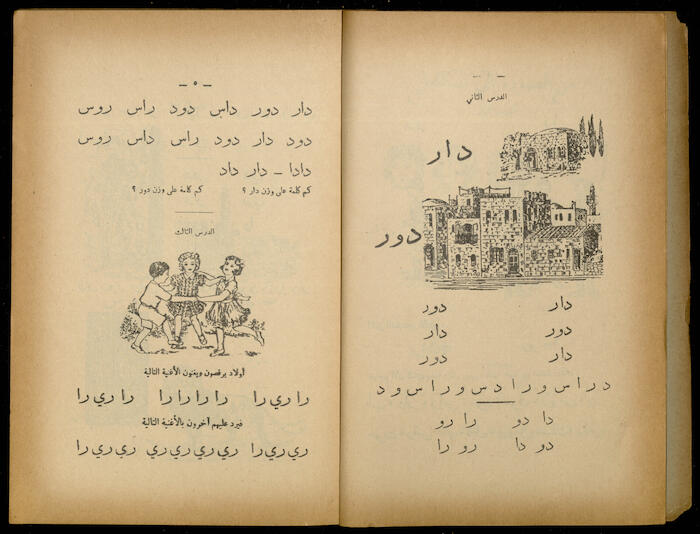 الدرس الثاني
دار
دور
دار دور
دور دار
دار دور
د ر ا س و ر ا د س و ر ا س و د
دا دو را رو
دو دا رو را
— ٥ —
دار دور داس دود راس روس
دود دار دود راس داس روس
دادا — دار داد
كم كلمة على وزن دار ؟ كم كلمة على وزن دور ؟
الدرس الثالث
أولاد يرقصون ويغنون الأغنية التالية
را ري را را را را را را ري را
فيرد عليهم آخرون بالأغنية التالية
ري ري را ري ري ري ري ري ري را